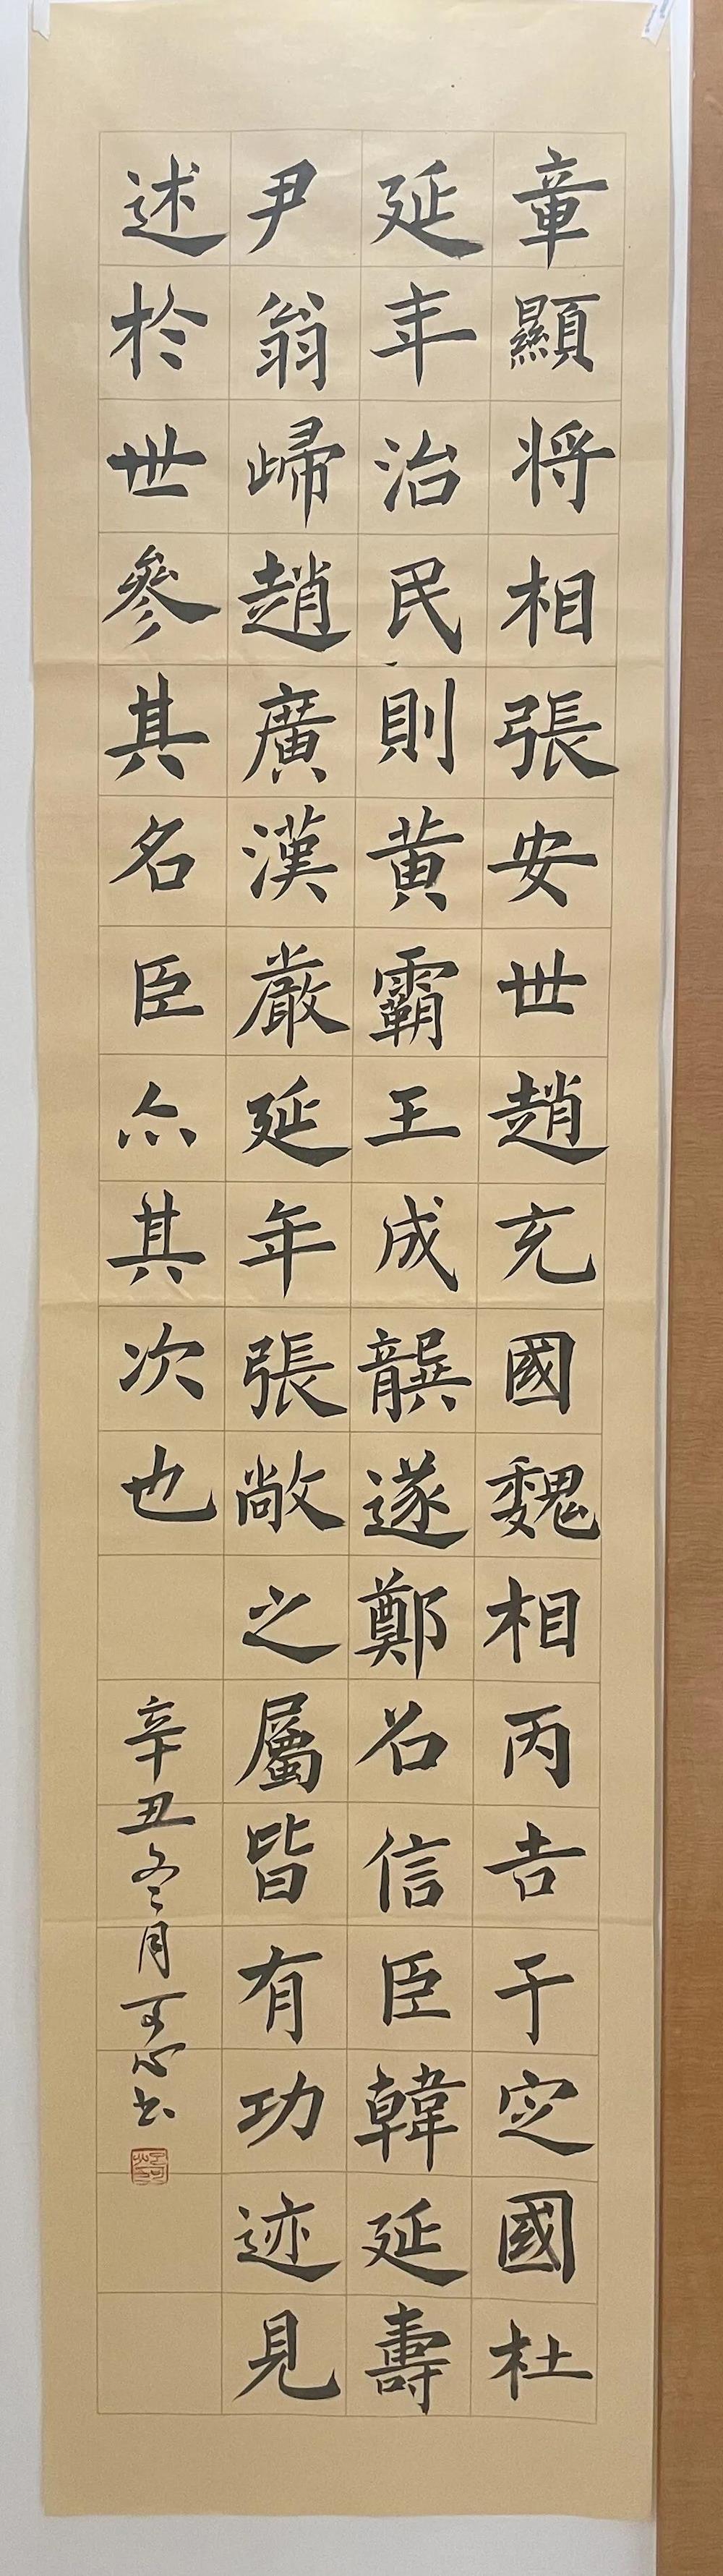 章顯将相張安世趙充國魏相丙吉于定國杜
延年治民則黃霸王成龔遂鄭召信臣韓延壽
尹翁歸趙廣漢嚴延年張敞之屬皆有功迹見
述於世參其名臣亦其次也
辛丑冬月可心书